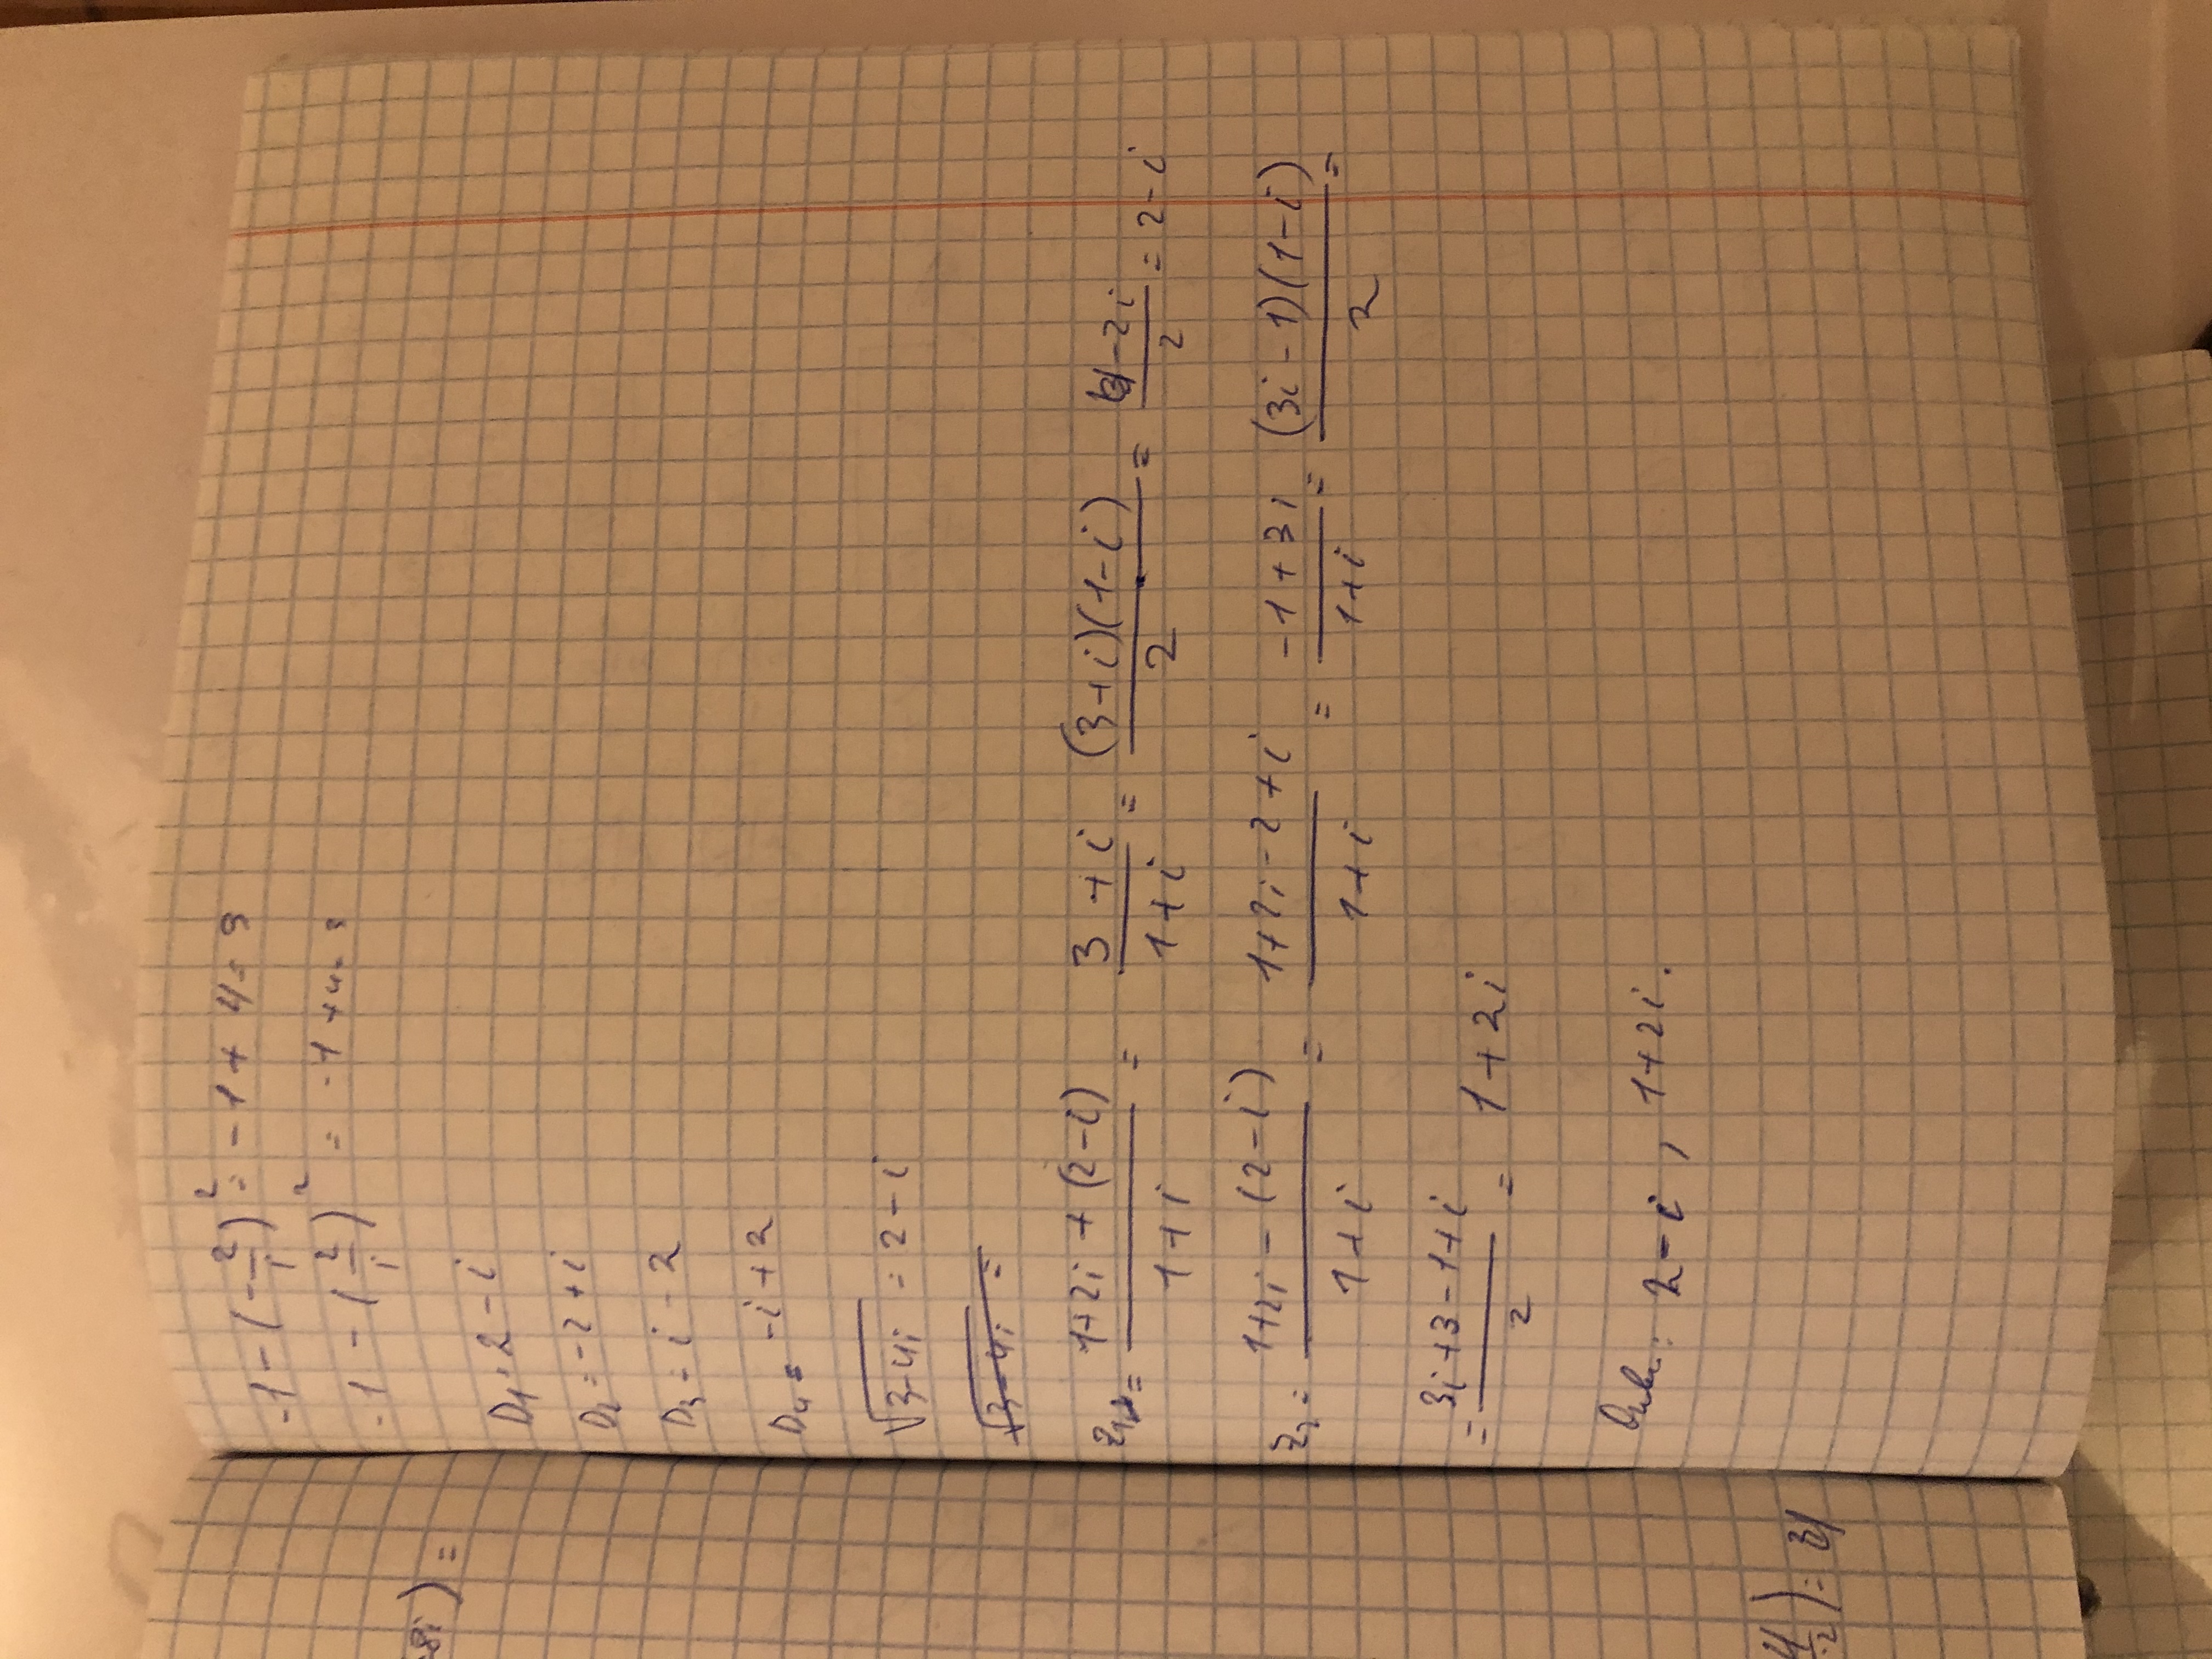 -8i) =
4/-2) = 3
-1 - (-2/i)² = -1 + 4 = 3
-1 - (2/i)² = -1 + 4 = 3
D₁ = 2 - i
D₂ = -2 + i
D₃ = i - 2
D₄ = -i + 2
√3-4i = 2 - i
√3-4i =
z₁ = 1+2i + (2-i) / 1+i = 3 + i / 1+i = (3+i)(1-i) / 2 = 4-2i / 2 = 2-i
z₂ = 1+2i - (2-i) / 1+i = 1+2i-2+i / 1+i = -1+3i / 1+i = (3i-1)(1-i) / 2 =
= 3i+3-1+i / 2 = 1+2i
Ответ: 2-i, 1+2i.